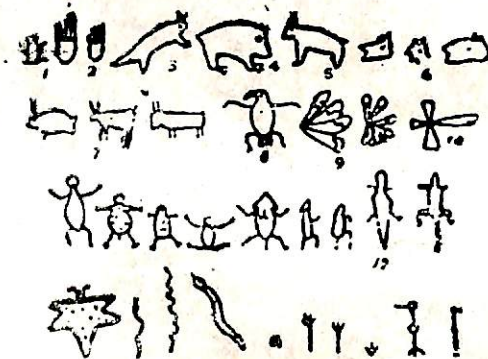 1 2 3 4 5 6
7 8 9 10
17